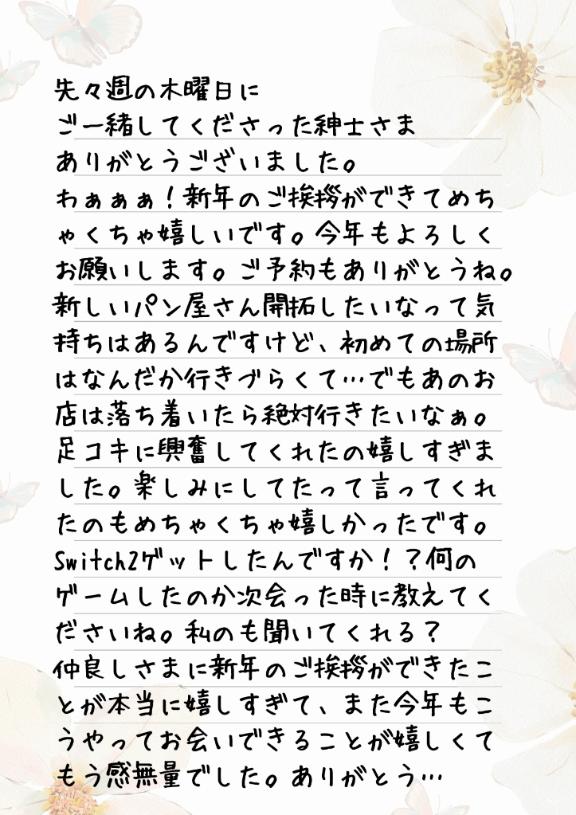 先々週の木曜日に
ご一緒してくださった紳士さま
ありがとうございました。
わぁぁぁ！新年のご挨拶ができてめち
ゃくちゃ嬉しいです。今年もよろしく
お願いします。ご予約もありがとうね。
新しいパン屋さん開拓したいなって気
持ちはあるんですけど、初めての場所
はなんだか行きづらくて…でもあのお
店は落ち着いたら絶対行きたいなぁ。
足コキに興奮してくれたの嬉しすぎま
した。楽しみにしてたって言ってくれ
たのもめちゃくちゃ嬉しかったです。
Switch2ゲットしたんですか！？何の
ゲームしたのか次会った時に教えてく
ださいね。私のも聞いてくれる？
仲良しさまに新年のご挨拶ができたこ
とが本当に嬉しすぎて、また今年もこ
うやってお会いできることが嬉しくて
もう感無量でした。ありがとう…